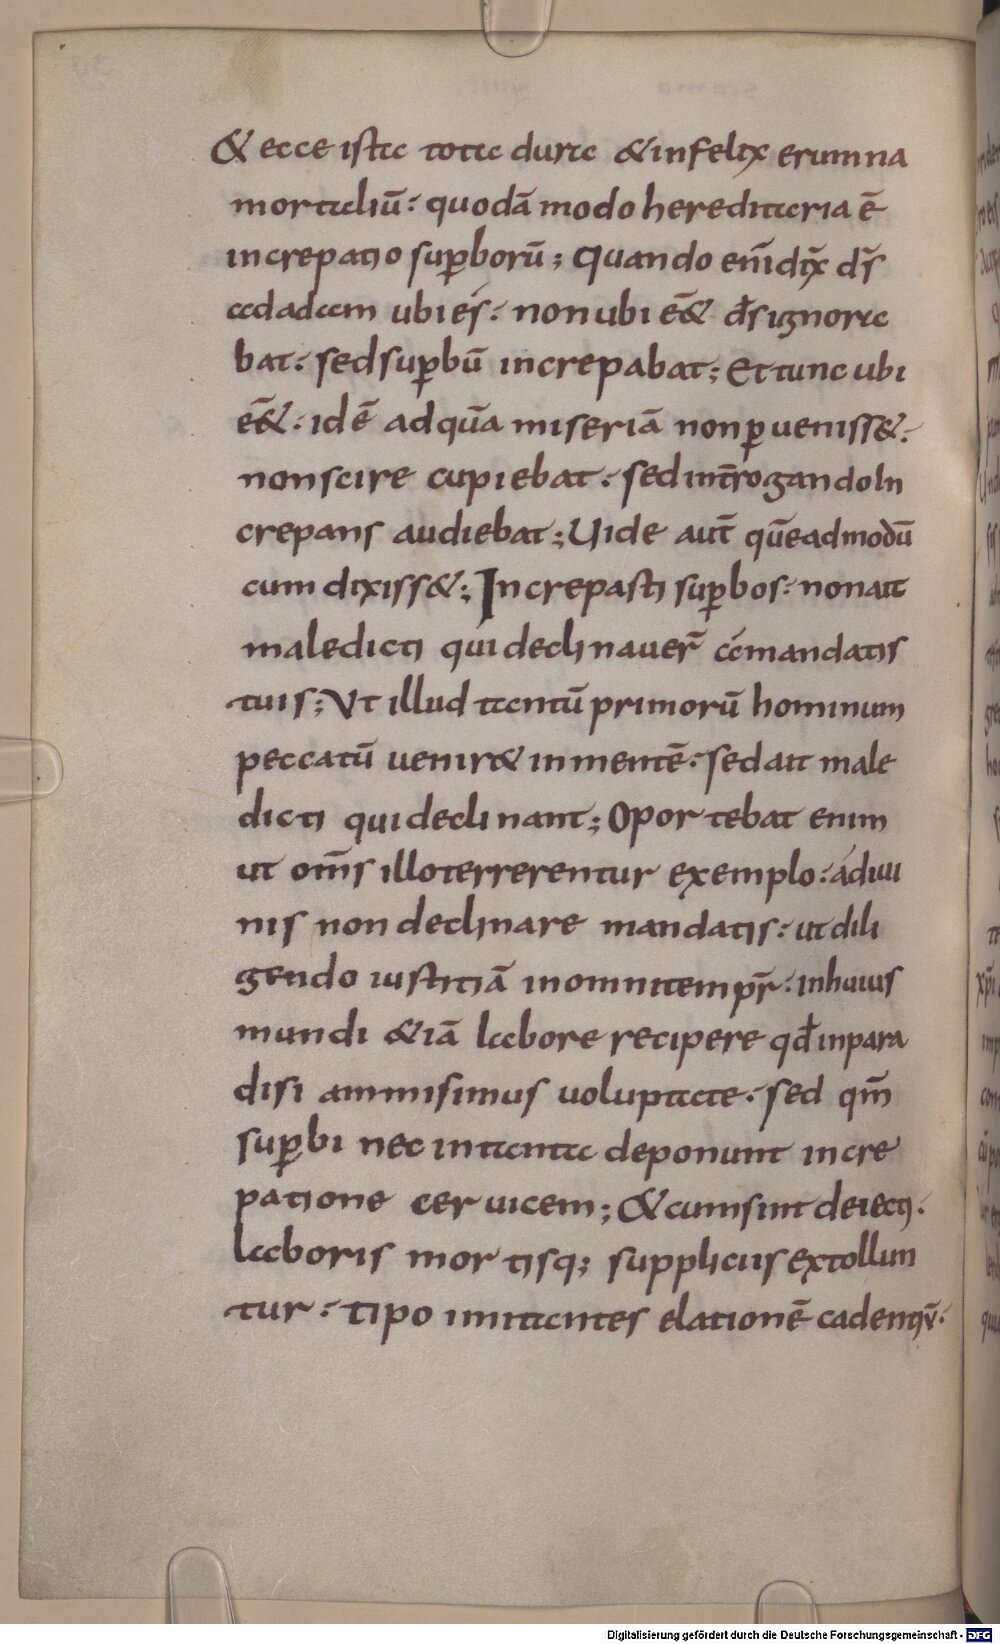 & ecce ista tota dura & infelix erumna
mortaliū: quodā modo hereditaria ē
increpatio sup̱borū; Quando eni̅ dix̅ ds̅
ad adam ubi es: non ubi ēēt ds̅ ignora
bat: sed sup̱bū increpabat; Et tunc ubi
ē&: id ē ad quā miseriā non p̱uenisset:
non scire cupiebat: sed int̅rogando In
crepans audiebat; Uide aut̅ quēadmodū
cum dixiss&; Increpasti sup̱bos: non ait
maledicti qui declinauer̅ a mandatis
tuis; Ut illud tantū primorū hominum
peccatū uenir& in mentē: sed ait male
dicti qui declinant; Oportebat enim
ut om̅s illo terrerentur exemplo: a diui
nis non declinare mandatis: ut dili
gendo iustitiā in omni temp̱r̅: in huius
mundi &iā labore recipere qd̅ in para
disi ammisimus uoluptate: sed qm̅
sup̱bi nec in tanta deponunt incre
patione ceruicem; & cum sint deiecti:
laboris mortisq; suppliciis extollun
tur: tipo imitantes elationē cadentiū:
Digitalisierung gefördert durch die Deutsche Forschungsgemeinschaft - DFG